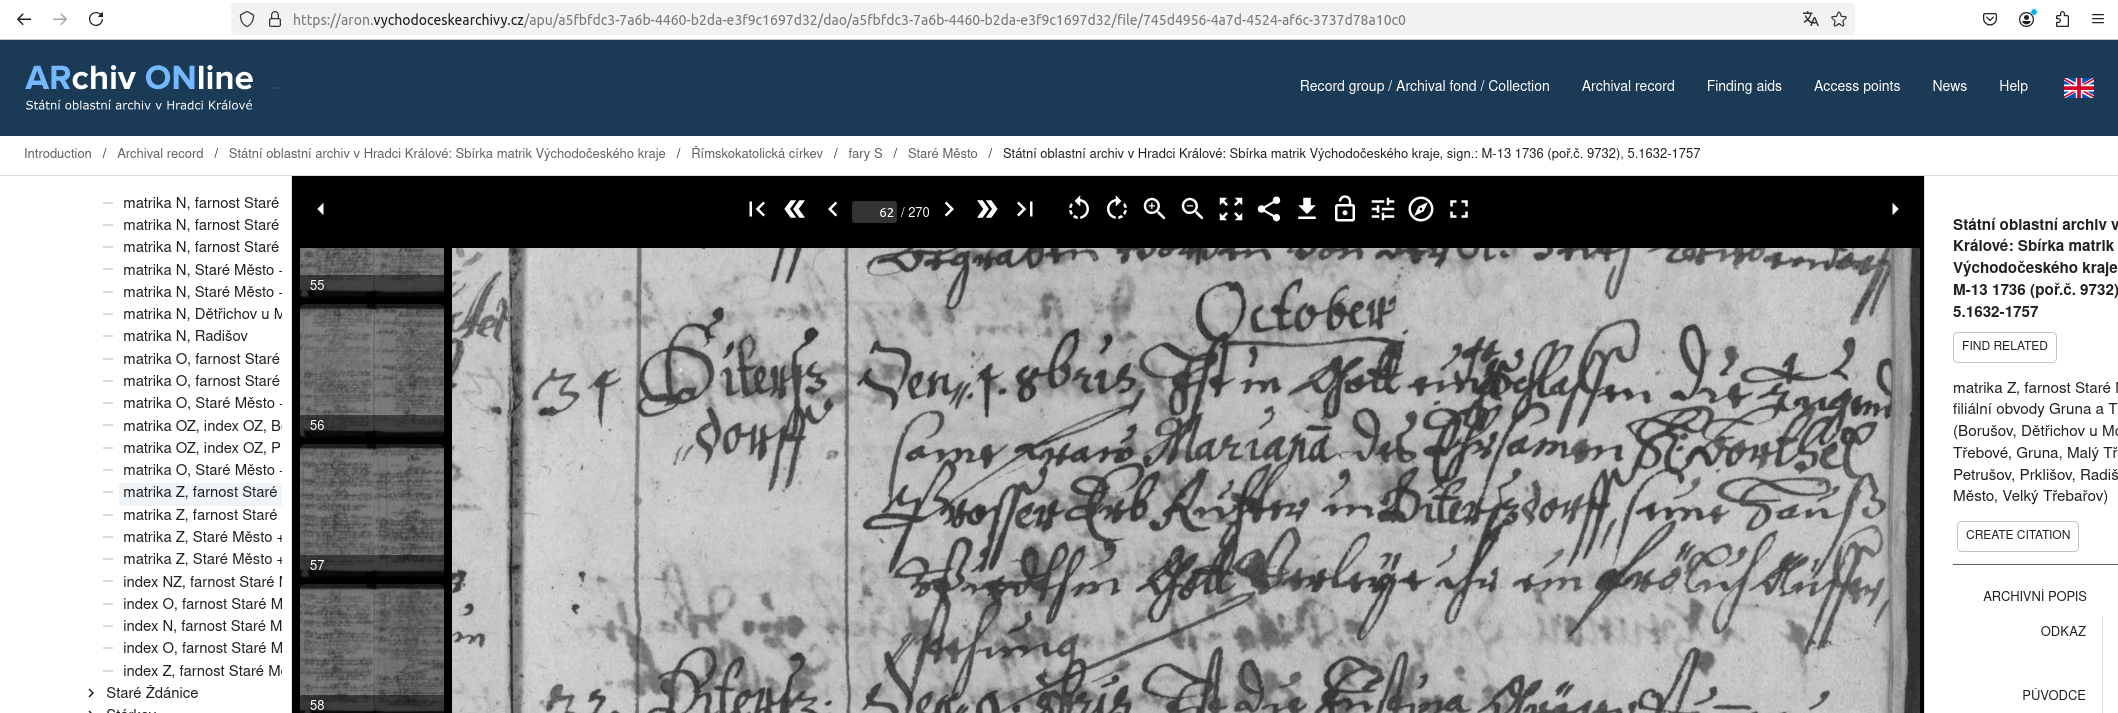 https://aron.vychodoceskearchivy.cz/apu/a5fbfdc3-7a6b-4460-b2da-e3f9c1697d32/dao/a5fbfdc3-7a6b-4460-b2da-e3f9c1697d32/file/745d4956-4a7d-4524-af6c-3737d78a10c0
ARchiv ONline
Státní oblastní archiv v Hradci Králové
Record group / Archival fond / Collection
Archival record
Finding aids
Access points
News
Help
Introduction / Archival record / Státní oblastní archiv v Hradci Králové: Sbírka matrik Východočeského kraje / Římskokatolická církev / fary S / Staré Město / Státní oblastní archiv v Hradci Králové: Sbírka matrik Východočeského kraje, sign.: M-13 1736 (poř.č. 9732), 5.1632-1757
matrika N, farnost Staré
matrika N, farnost Staré
matrika N, farnost Staré
matrika N, Staré Město -
matrika N, Staré Město -
matrika N, Dětřichov u M
matrika N, Radišov
matrika O, farnost Staré
matrika O, farnost Staré
matrika O, Staré Město -
matrika OZ, index OZ, B
matrika OZ, index OZ, P
matrika O, Staré Město -
matrika Z, farnost Staré
matrika Z, farnost Staré
matrika Z, Staré Město +
matrika Z, Staré Město +
index NZ, farnost Staré M
index O, farnost Staré M
index N, farnost Staré M
index O, farnost Staré M
index Z, farnost Staré Mě
Staré Ždánice
62 / 270
55
56
57
58
October
31 Ditersdorff
Den 1. 8bris Ist in Gott entschlaffen die Tugend
same Mariana des Ehrsamen
Erb Richter in Ditersdorff seine Hauß
Würthin Gott verleye ihr ein frölich Auffer
stehung
Ditersd
Státní oblastní archiv v
Králové: Sbírka matrik
Východočeského kraje
M-13 1736 (poř.č. 9732)
5.1632-1757
FIND RELATED
matrika Z, farnost Staré M
filiální obvody Gruna a T
(Borušov, Dětřichov u Mo
Třebové, Gruna, Malý Tř
Petrušov, Prklišov, Radiš
Město, Velký Třebařov)
CREATE CITATION
ARCHIVNÍ POPIS
ODKAZ
PŮVODCE